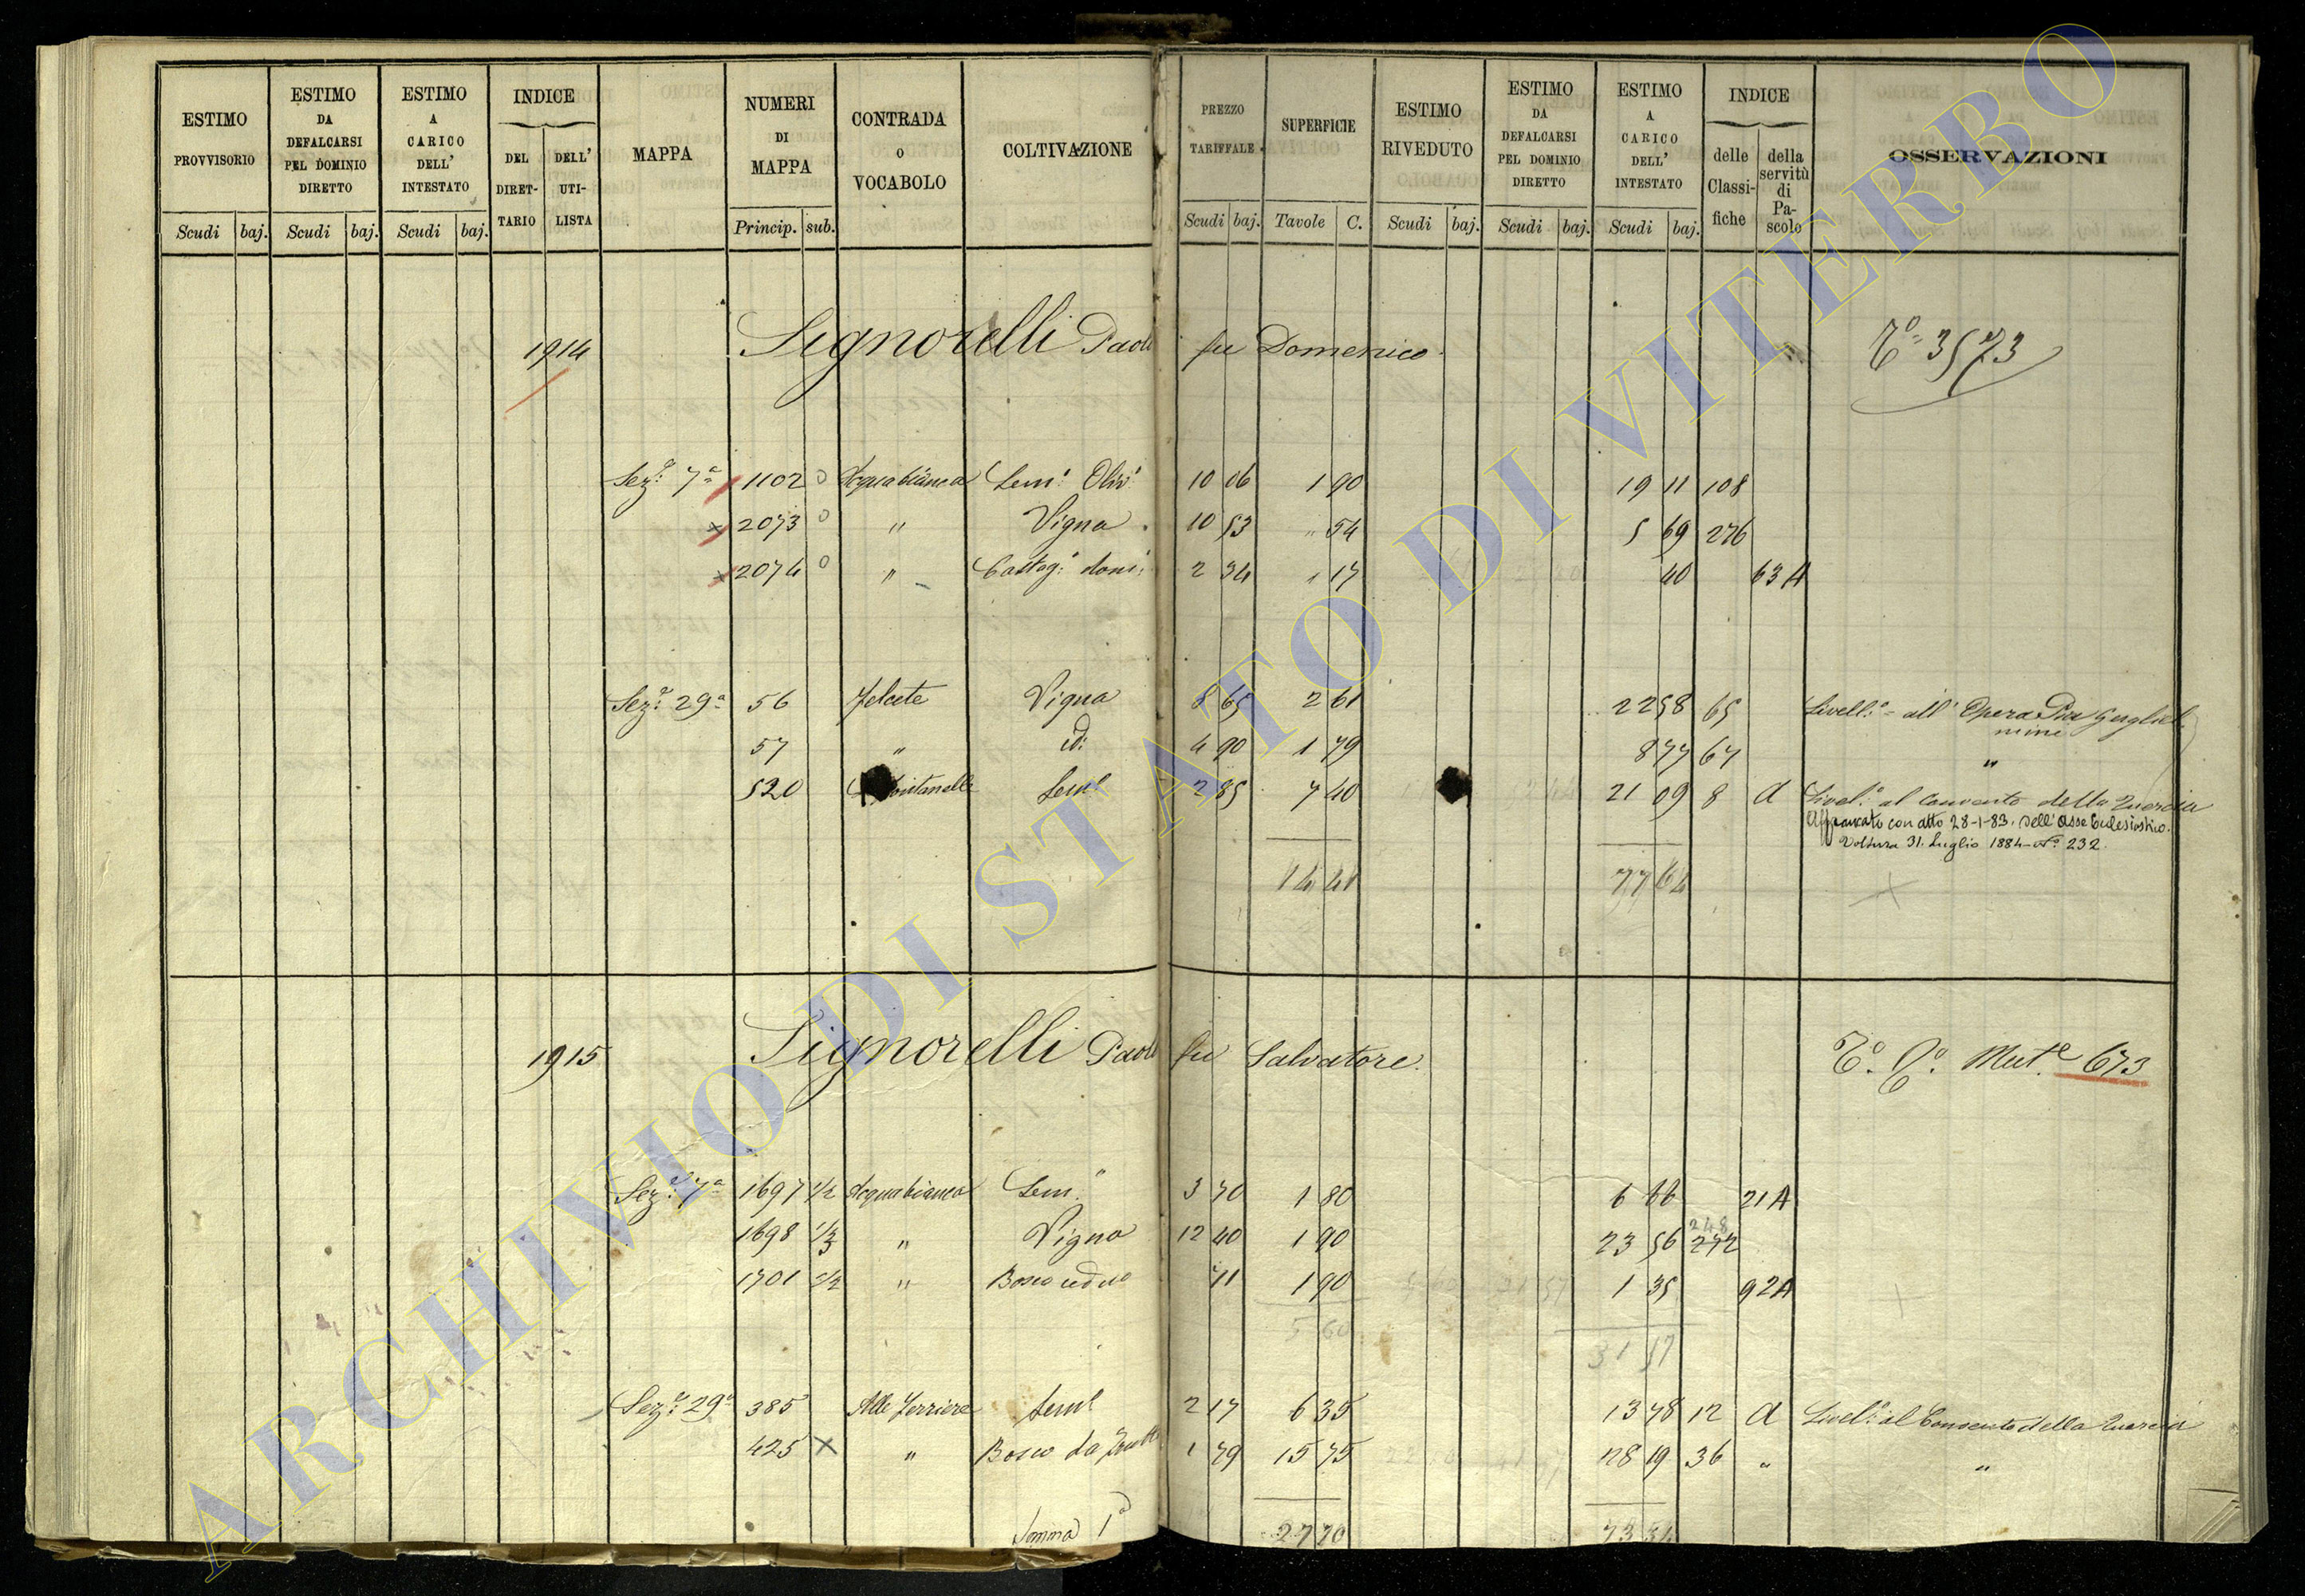 ESTIMO PROVVISORIO
Scudi baj.
ESTIMO DA DEFALCARSI PEL DOMINIO DIRETTO
Scudi baj.
ESTIMO A CARICO DELL' INTESTATO
Scudi baj.
INDICE
DEL DIRET-TARIO
DELL' UTI-LISTA
MAPPA
NUMERI DI MAPPA
Princip. sub.
CONTRADA O VOCABOLO
COLTIVAZIONE
PREZZO TARIFFALE
Scudi baj.
SUPERFICIE
Tavole C.
ESTIMO RIVEDUTO
Scudi baj.
ESTIMO DA DEFALCARSI PEL DOMINIO DIRETTO
Scudi baj.
ESTIMO A CARICO DELL' INTESTATO
Scudi baj.
INDICE
delle Classi-fiche
della servitù di Pa-scolo
OSSERVAZIONI
1914 Signorelli Paolo fu Domenico To 3573
Seze 7a 1102 Acquabianca Semi Olivi 10 06 1 90 19 11 108
2073 " Vigna 10 53 " 54 5 69 276
2074 " Castag: dom: 2 34 " 17 40 63 A
Seze 29a 56 Felcete Vigna 8 65 2 61 22 58 65 Livello all' Opera Pia Gugliel
mini
57 " id: 4 90 1 79 8 77 67 "
520 Fontanelle Seme 2 85 7 40 21 09 8 A Livello al Convento della Quercia
Affrancato con atto 28-1-83. dell' Asse Eclesiastico.
Voltura 31. Luglio 1884 - No 232.
14 41 77 64
1915 Signorelli Paolo fu Salvatore To Qo Mute 673
Seze 7a 1697 1/2 Acquabianca Sem. 3 70 1 80 6 66 21 A
248
1698 " Vigna 12 40 1 90 23 56 272
1701 1/2 " Bosco ceduo 71 1 90 1 35 92 A
5 60 31 57
Seze 29a 385 Alle Ferriere Seme 2 17 6 35 13 78 12 A Livello al Convento della Quercia
425 x " Bosco da 1 79 15 75 28 19 36 " "
Somma 1a 27 70 73 54
ARCHIVIO DI STATO DI VITERBO